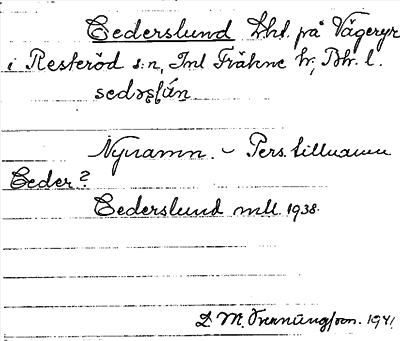 Cederslund Lht. på Vägeryr
i Resteröd s:n, Inl Fräkne hr, Bh. l.
sedəʂlún
Nynamn. – Pers. tillnamn
Ceder?
Cederslund mtl. 1938.
D. M. 1941